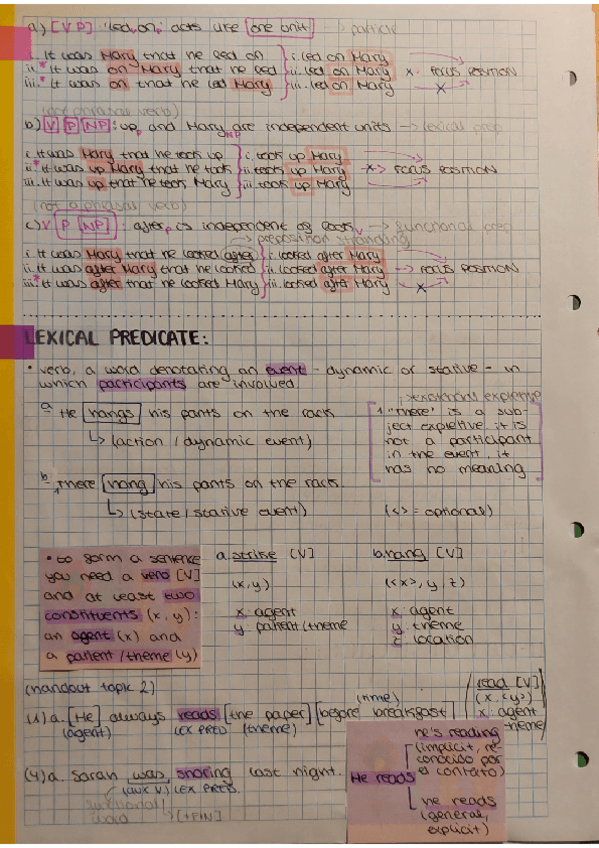 a) [V P] 'led on' acts like one unit → particle
i. It was Mary that he led on } i. led on Mary
ii. * It was on Mary that he led ii. led on Mary x FOCUS POSITION
iii. * It was on that he led Mary iii. led on Mary x
(not phrasal verb)
b) V P NP : up P and Mary NP are independent units → lexical prep
i. It was Mary that he took up } i. took up Mary
ii * It was up Mary that he took ii. took up Mary x> FOCUS POSITION
iii. It was up that he took Mary iii. took up Mary
(not a phrasal verb)
c) V P [NP] : after P is independent of look V → functional prep
→ preposition stranding
i. It was Mary that he looked after } i. looked after Mary
ii. It was after Mary that he looked ii. looked after Mary → FOCUS POSITION
iii. * It was after that he looked Mary iii. looked after Mary x
LEXICAL PREDICATE:
• verb, a word denotating an event - dynamic or stative - in
which participants are involved.
a. He hangs his pants on the rack
↳ (action / dynamic event)
b. 1 There hang his pants on the rack.
↳ (state / stative event)
→ existential expletive
1 "There" is a sub-
ject expletive it is
not a participant
in the event, it
has no meaning
(< > = optional)
• to form a sentence
you need a verb [V]
and at least two
constituents (x, y):
an agent (x) and
a patient / theme (y)
a. strike [V]
(x, y)
x: agent
y: patient / theme
b. hang [V]
(<x>, y, z)
x: agent
y: theme
z: location
(handout topic 2)
(1) a. [He] always reads [the paper] [before breakfast]
(agent) LEX PRED (theme) (time)
read [V]
(x, <y>)
x: agent
theme
(4) a. Sarah was snoring last night.
(aux V.) LEX PRED.
functional
word → [+FIN]
He reads
he's reading
(implicit, re-
conocido por
el contexto)
he reads
(general,
explicit)